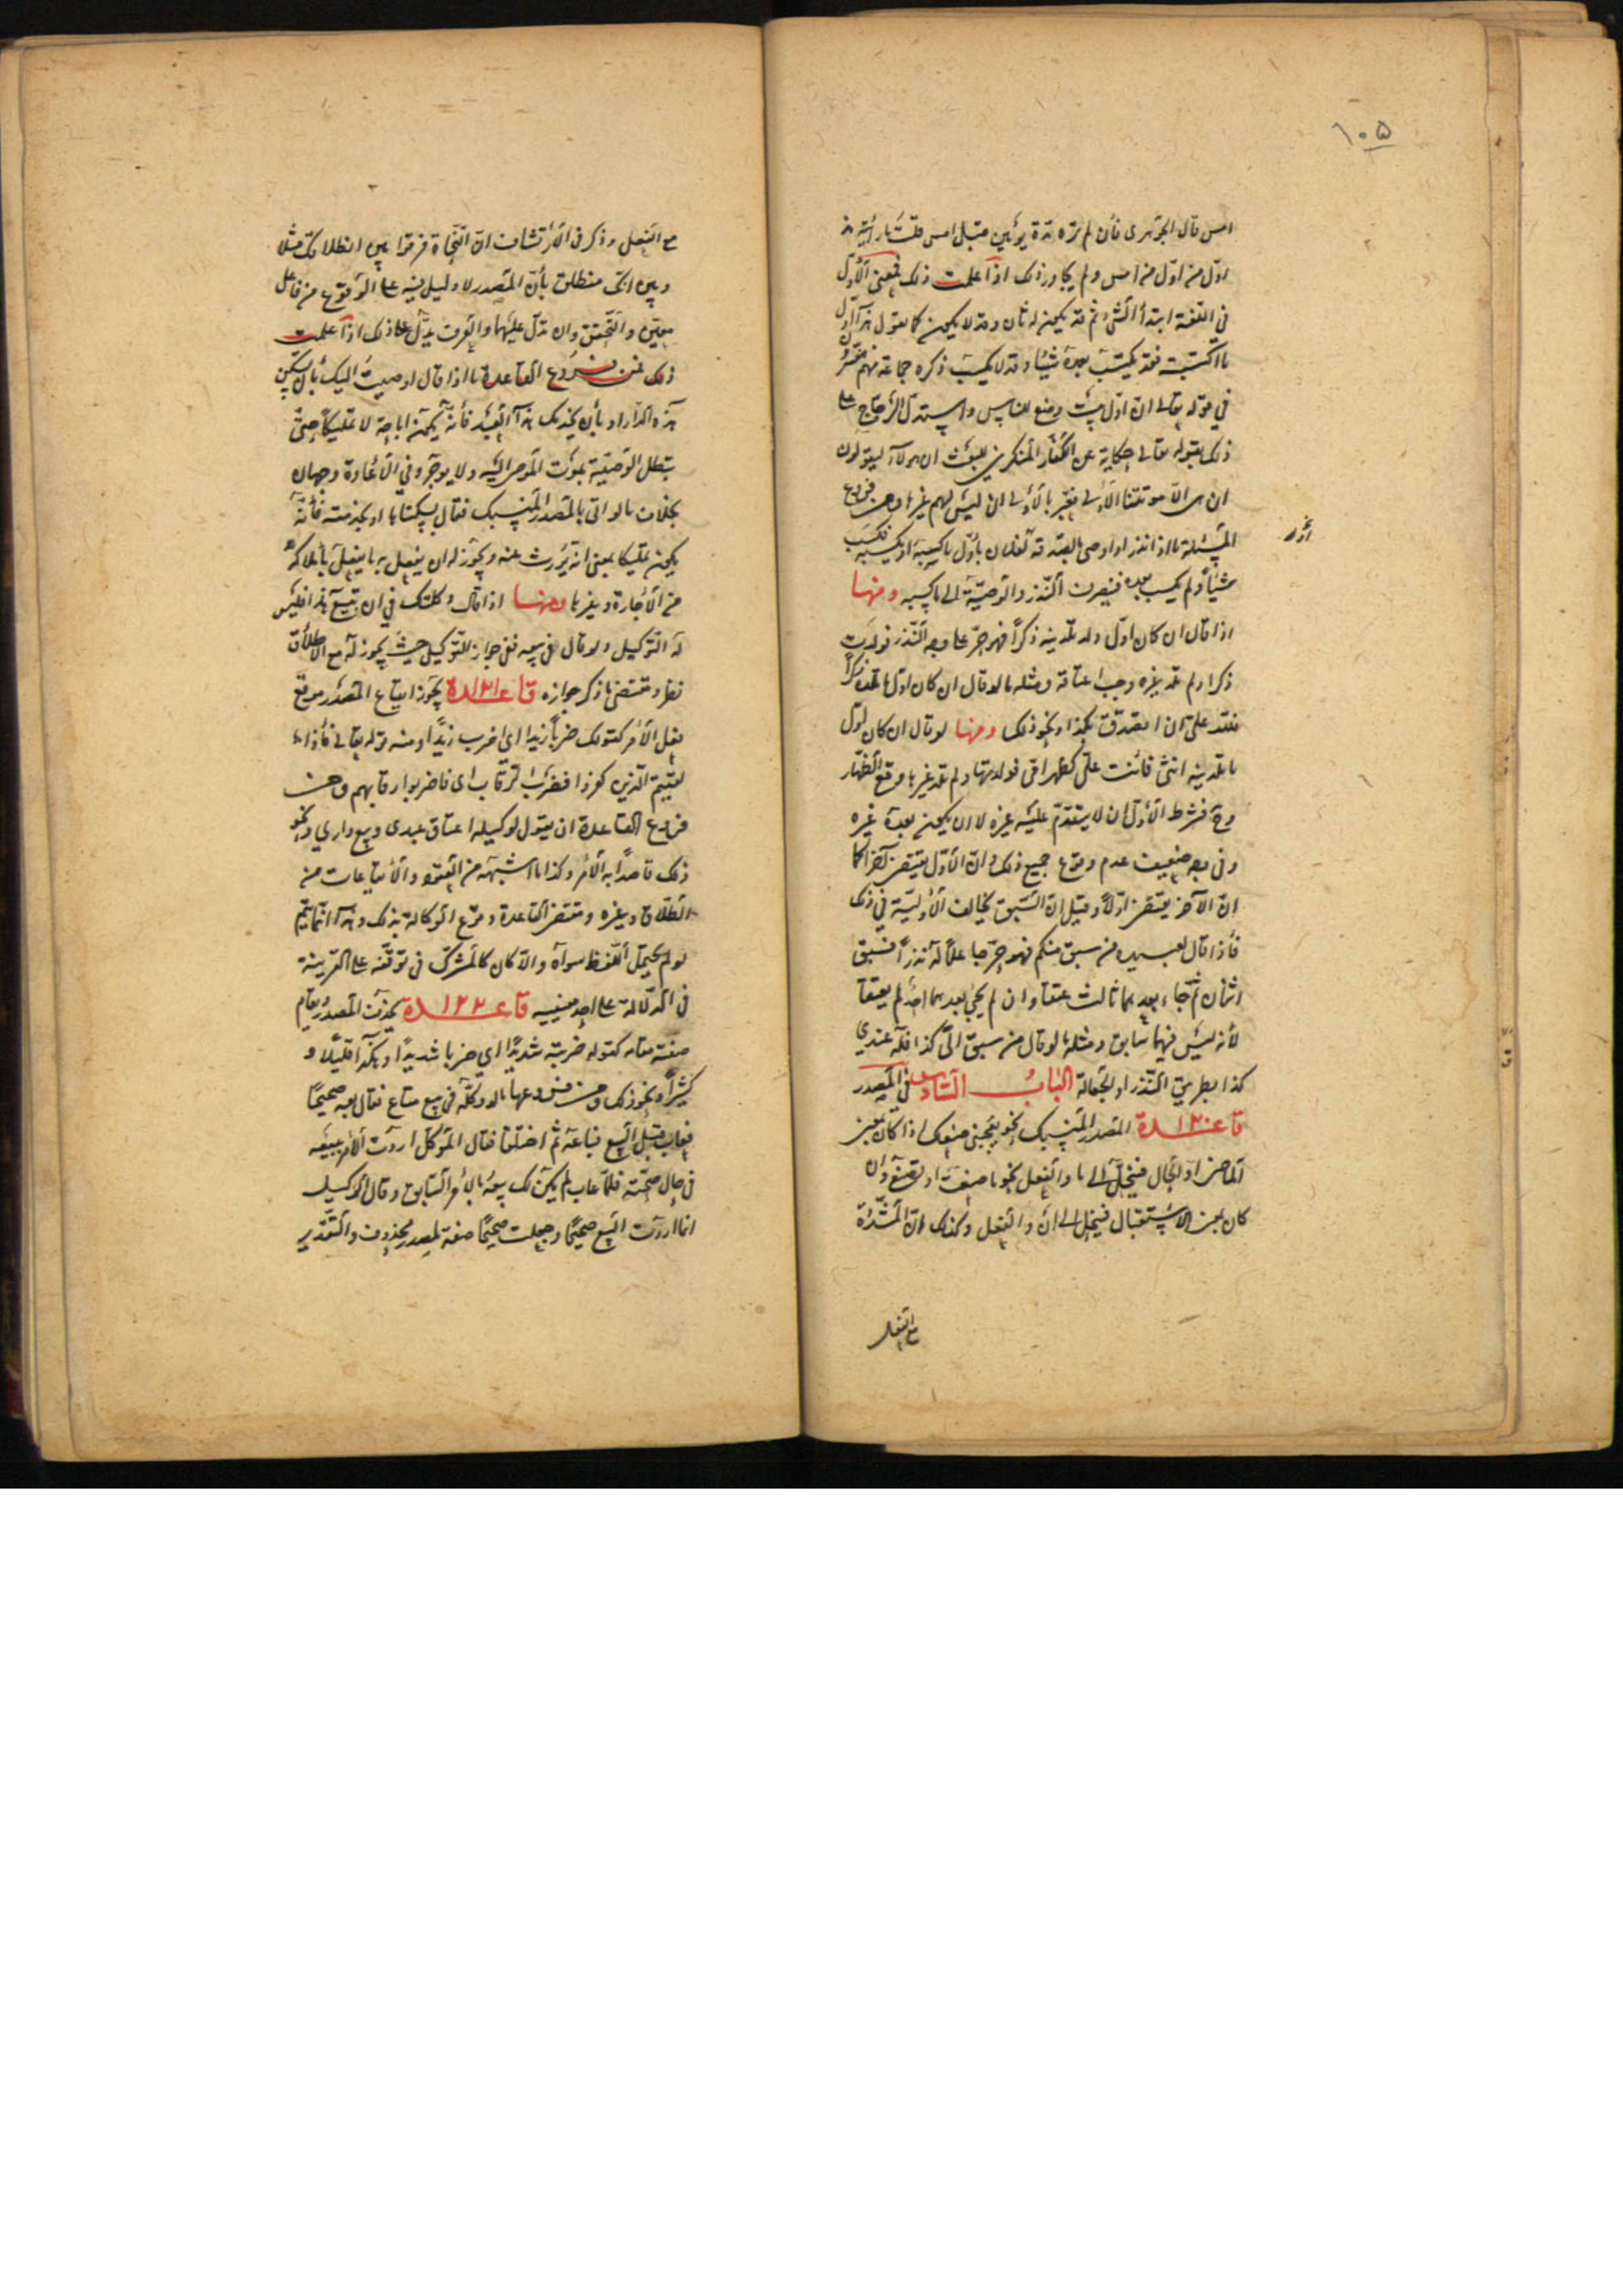 ١٠٥
امس قال الجوهرى فأن لم تره مدة يومين قبل امس قلت ما رأيته مذ
اوّل من اوّل من امس ولم يجاوز ذلك اذا علمت ذلك فمعنى الأوّل
فى اللغة ابتدأ الشئ ثم قد يكون له ثان وقد لا يكون كما تقول هذا اوّل
ما اكتسبت فقد يكتسب بعده شيئا وقد لا يكسب ذكره جماعة منهم
فى قوله تعالى انّ اوّل بيت وضع للناس واستدل الزجاج على
ذلك بقوله تعالى حكاية عن الكفار المنكرين للبعث ان هولاء ليقولون
ان هى الّا موتتنا الأولى فعبّر بالأولى ان ليس لهم غيرها ومن فروع
المسئلة ما اذا نذر او اوصى بالصدقة بأوّل ما يكسبه فكسب
شيئاً ولم يكسب بعده فيصرف النّذر والوصيّة الى ما كسبه ومنها
اذا قال ان كان اوّل ولد تلدينه ذكراً فهو حرّ على وجه النّذر فولدت
ذكرا ولم تلد غيره وجب اعتاقه ومثله ما لو قال ان كان اوّل ما تلده ذكراً
فلله علىّ ان اتصدّق بكذا ونحو ذلك ومنها لو قال ان كان اوّل
ما تلدينه انثى فأنت علىّ كظهر امّى فولدتها ولم تلد غيرها وقع الظهار
وح فشرط الأوّل ان لا يتقدّم عليه غيره لا ان يكون بعده غيره
وفى وجه ضعيف عدم وقوع جميع ذلك وانّ الأوّل يقتضى آخرا كما
انّ الآخر يقتضى اولاً وقيل انّ السّبق يخالف الأوليّة فى ذلك
فأذا قال لعبيده من سبق منكم فهو حرّ جاعلاً له نذراً فسبق
اثنان ثم جاء بعدهما ثالث عتقا وان لم يجئ بعدهما احد لم يعتقا
لأنه ليس فيهما سابق ومثله ما لو قال من سبق الىّ كذا فله عندي
كذا بطريق النّذر او الجعالة الباب السّادس فى المصدر
قاعدة ١٢٠ المصدر المنسبك نحو يعجبنى صنعك اذا كان بمعنى
الماضى او الحال فينحلّ الى ما والفعل نحو ما صنعت او تصنع وان
كان بمعنى الاستقبال فينحل الى ان والفعل وكذلك انّ المشدّدة
مع الفعل
مع الفعل وذكر فى الأرتشاف انّ النّحاة فرقوا بين انطلاقك مثلا
وبين انّك منطلق بأنّ المصدر لا دليل فيه على الوقوع من فاعل
معيّن والتّحقق وان تدل عليهما والعرف يدلّ على ذلك اذا علمت
ذلك فمن فروع القاعدة ما اذا قال اوصيت اليك بأن تسكن
هذه الدّار او بأن يخدمك هذا العبد فأنّه يكون اباحة لا تمليكا حتّى
تبطل الوصيّة بموت الموصى اليه ولا يوجر وفي الأعادة وجهان
بخلاف ما لو اتى بالمصدر المنسبك فقال بسكناها او بخدمته فأنّه
يكون تمليكا بمعنى انّه يورث عنه ويجوز له ان يفعل به ما يفعل بأملاكه
من الأجارة وغيرها ومنها اذا قال وكلتك في ان تبيع هذا فليس
له التوكيل ولو قال فى بيعه ففى جواز التوكيل حيث يجوز له مع الاطلاق
نظر ومقتضى ما ذكر جوازه قاعدة ١٢١ يجوز ايقاع المصدر موقع
فعل الأمر كقولك ضرباً زيدا اى اضرب زيداً ومنه قوله تعالى فأذا
لقيتم الذين كفروا فضرب الرّقاب اى فاضربوا رقابهم ومن
فروع القاعدة ان يقول لوكيله اعتاق عبدى وبيع داري ونحو
ذلك قاصداً به الأمر وكذا ما اشبهه من العقود والأيقاعات من
الطّلاق وغيره ومقتضى القاعدة وقوع الوكالة بذلك وهذا انّما يتم
لو لم يحتمل اللفظ سواه والّا كان كالمشترك فى توقفه على القرينة
فى الدّلالة على احد معنييه قاعدة ١٢٢ يحذف المصدر ويقام
صفته مقامه كقوله ضربته شديدًا اي ضربا شديدًا وهكذا قليلًا و
كثيراً ونحو ذلك ومن فروعها ما لو وكّله فى بيع متاع فقال بعه صحيحًا
فعاب قبل البيع فباعه ثم اختلفا فقال الموكّل اردت الأمر ببيعه
فى حال صحّته فلمّا عاب لم يكن لك بيعه بالأمر السّابق وقال الوكيل
انما اردت البيع صحيحًا وجعلت صحيحًا صفة لمصدر محذوف والتّقدير